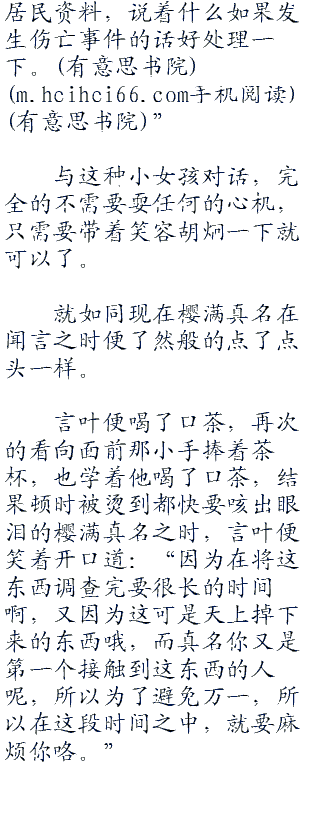 居民资料，说着什么如果发
生伤亡事件的话好处理一
下。(有意思书院)
(m.hcihci66.com手机阅读)
(有意思书院)”
与这种小女孩对话，完
全的不需要耍任何的心机，
只需要带着笑容胡炯一下就
可以了。
就如同现在樱满真名在
闻言之时便了然般的点了点
头一样。
言叶便喝了口茶，再次
的看向面前那小手捧着茶
杯，也学着他喝了口茶，结
果顿时被烫到都快要咳出眼
泪的樱满真名之时，言叶便
笑着开口道：“因为在将这
东西调查完要很长的时间
啊，又因为这可是天上掉下
来的东西哦，而真名你又是
第一个接触到这东西的人
呢，所以为了避免万一，所
以在这段时间之中，就要麻
烦你咯。”